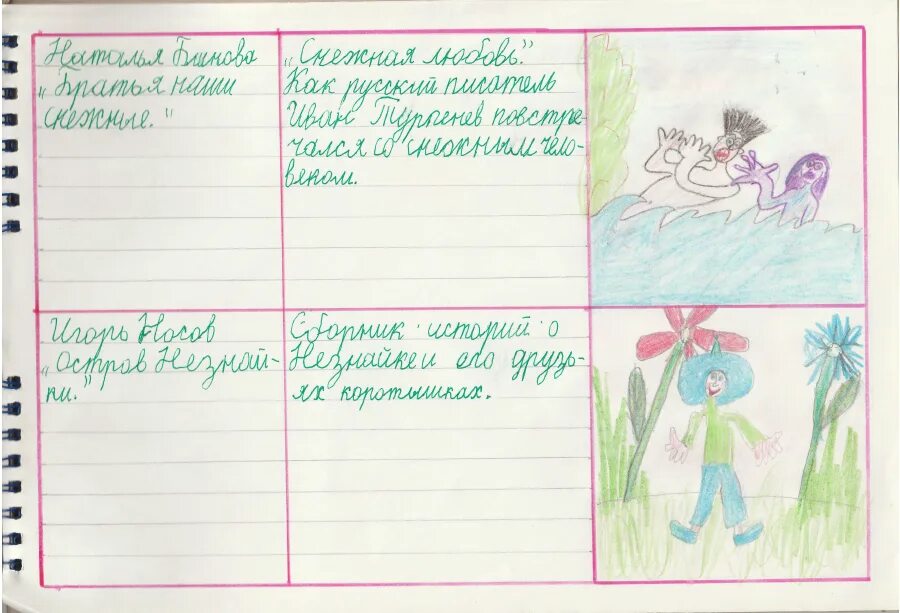 Наталья
„Братья наши
снежные."
„Снежная любовь".
Как русский писатель
Иван Тургенев повстре-
чался со снежным чело-
веком.
Игорь Носов
„Остров Незнай-
ки."
Сборник историй о
Незнайке и его друзь-
ях коротышках.